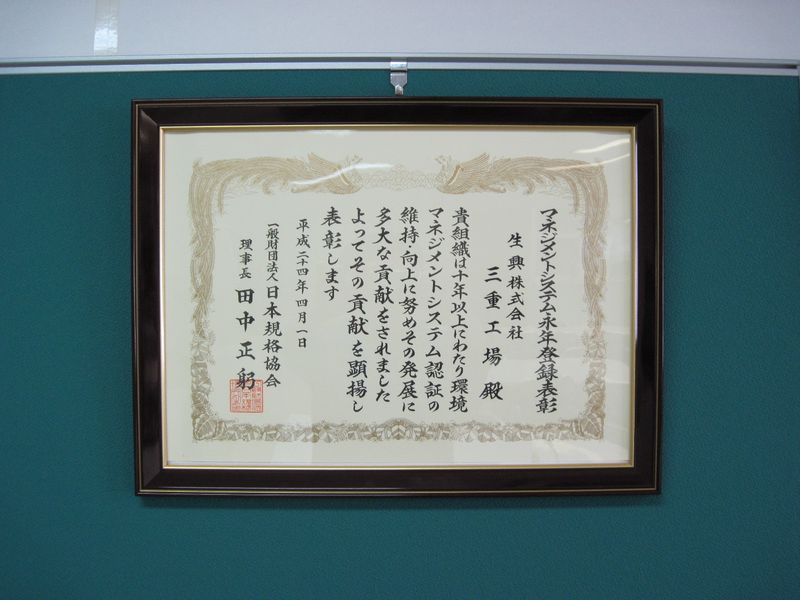 マネジメントシステム永年登録表彰
生興株式会社
三重工場 殿
貴組織は十年以上にわたり環境
マネジメントシステム認証の
維持・向上に努めその発展に
多大な貢献をされました
よってその貢献を顕揚し
表彰します
平成二十四年四月一日
一般財団法人日本規格協会
理事長 田中正躬